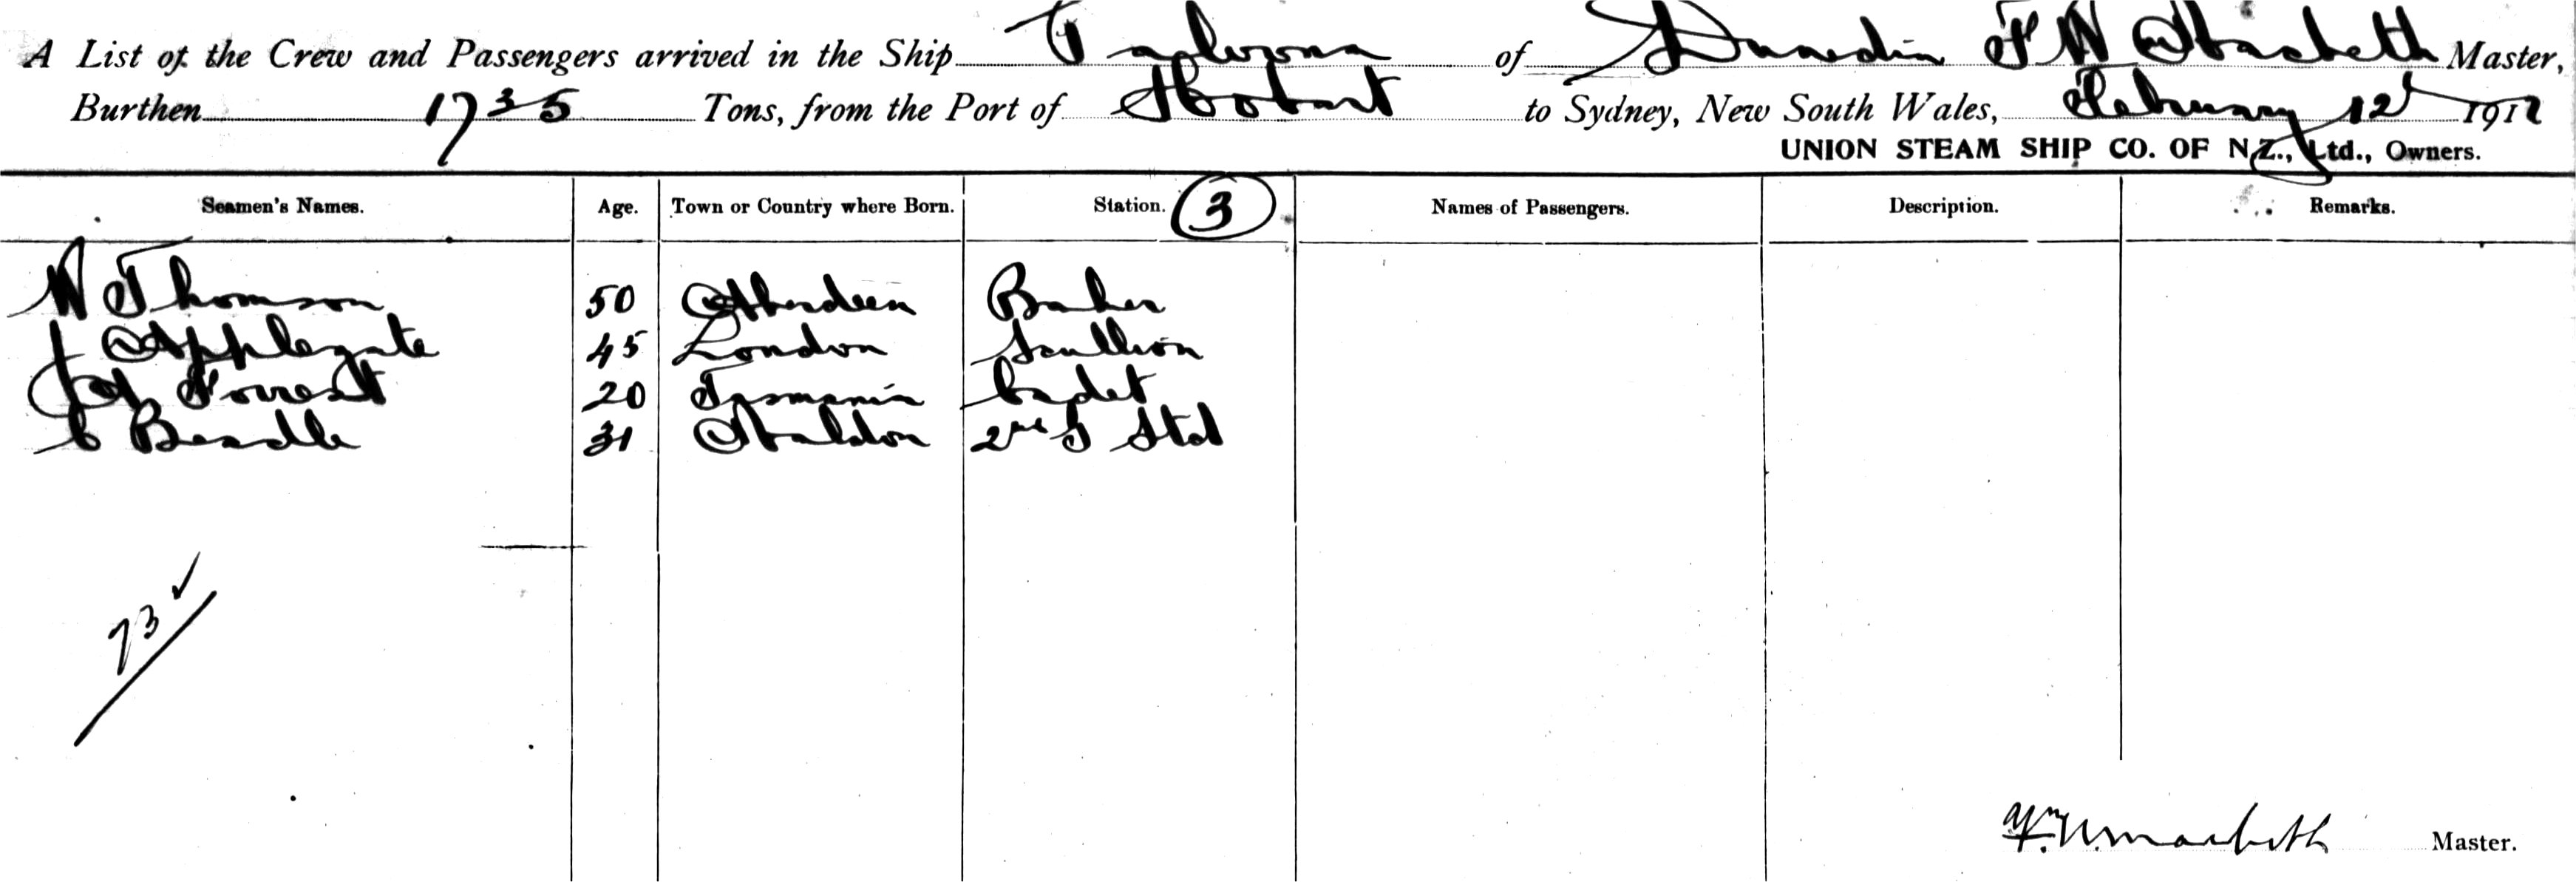 A List of the Crew and Passengers arrived in the Ship of Dunedin F W Macbeth Master,
Burthen 1735 Tons, from the Port of Hobart to Sydney, New South Wales, February 12 1912
UNION STEAM SHIP CO. OF N.Z., Ltd., Owners.
Seamen's Names. Age. Town or Country where Born. Station. 3 Names of Passengers. Description. Remarks.
W Thomson 50 Aberdeen Baker
J Applegate 45 London Scullion
Forrest 20 Tasmania Cadet
C Beadle 31 2nd S Std
73 ✓
Macbeth Master.